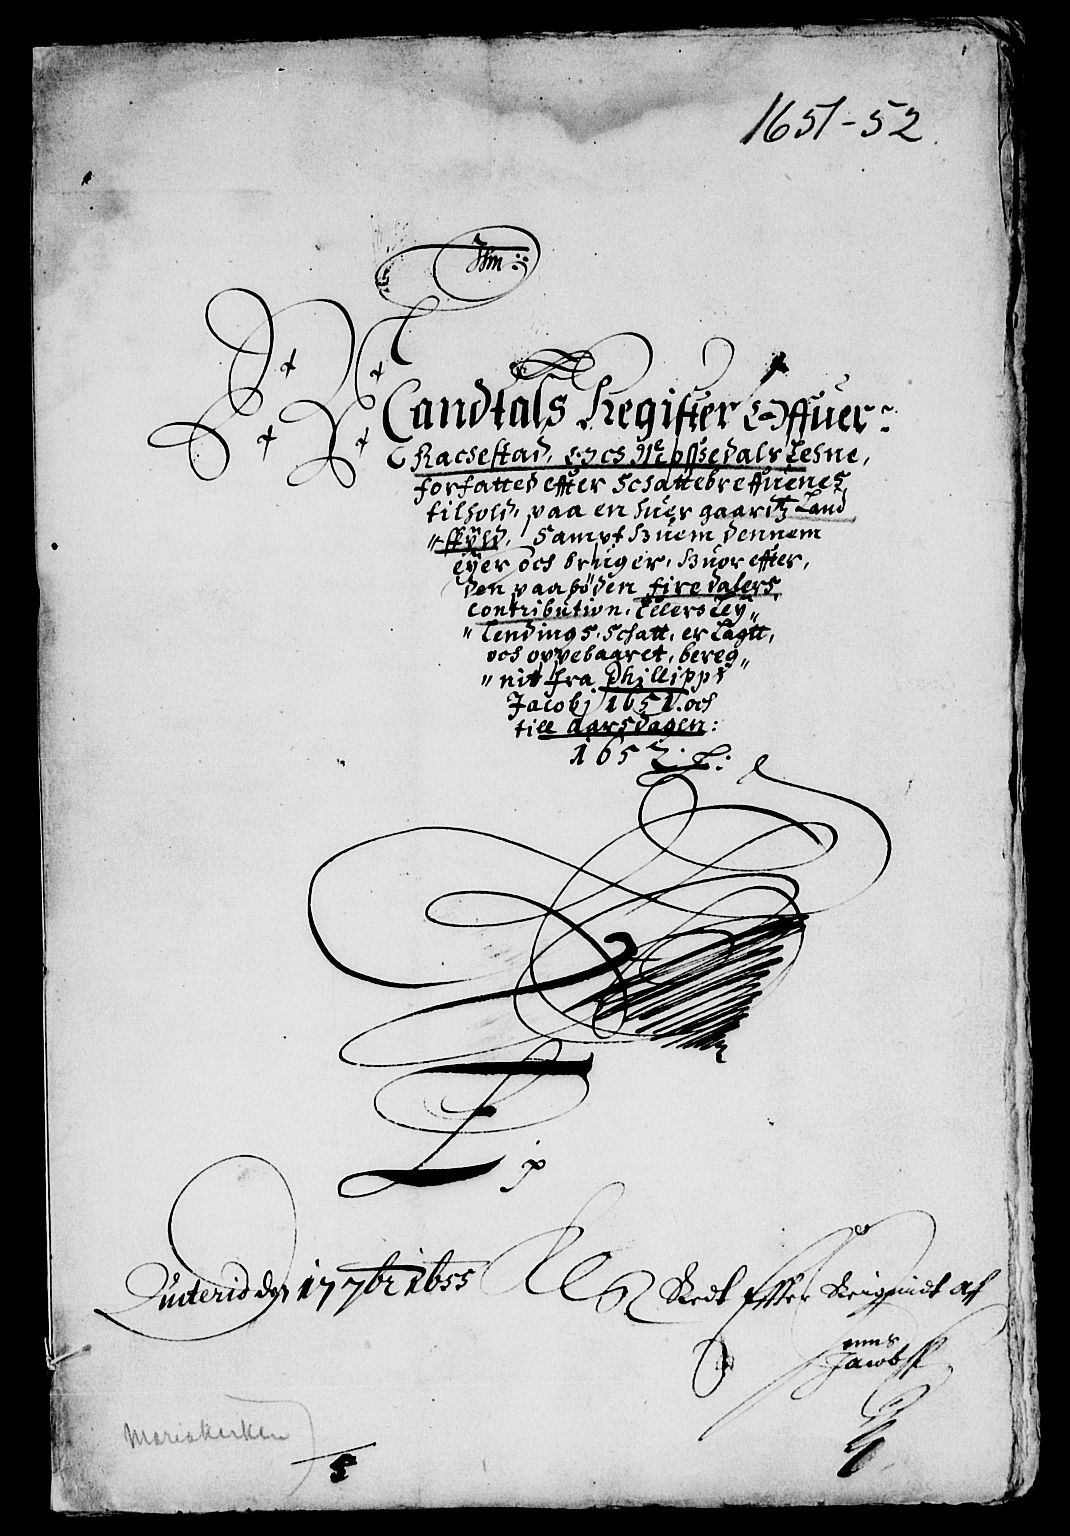 1651-52.
Mandtals Register Offuer:
Racsestad, Och Mipssedals Lehne,
forfatted effter Schattebreffuenes
tilhold, paa en huer gaardtz Land
"skyld, Sampt huem dennem
eÿer och bruger, huor effter,
den paabøden fire dalers
Contribution, Ellers Leÿ"
"lendings, Schatt, er Lagtt,
och oppebaaret, bereg"
"nit fra Phillippi
Jacobj 1651. och
till Aarsdagen:
1652
Quiterid den 17 7br 1655
Rect Effter Reignidt af
Jacobss
Mariakirken
5